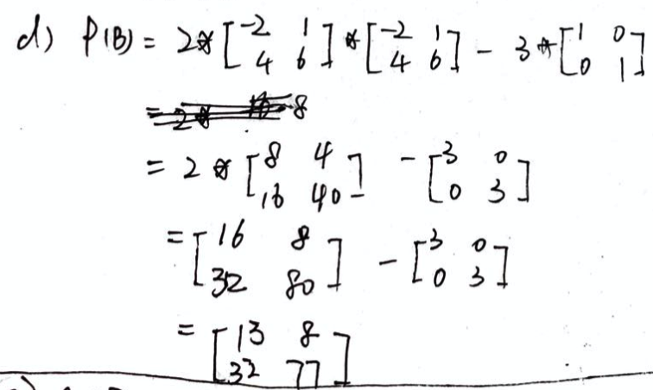 d) P(B) = 2*[-2 1; 4 6]*[-2 1; 4 6] - 3*[1 0; 0 1]
= 2*[8 4; 16 40] - [3 0; 0 3]
= [16 8; 32 80] - [3 0; 0 3]
= [13 8; 32 77]